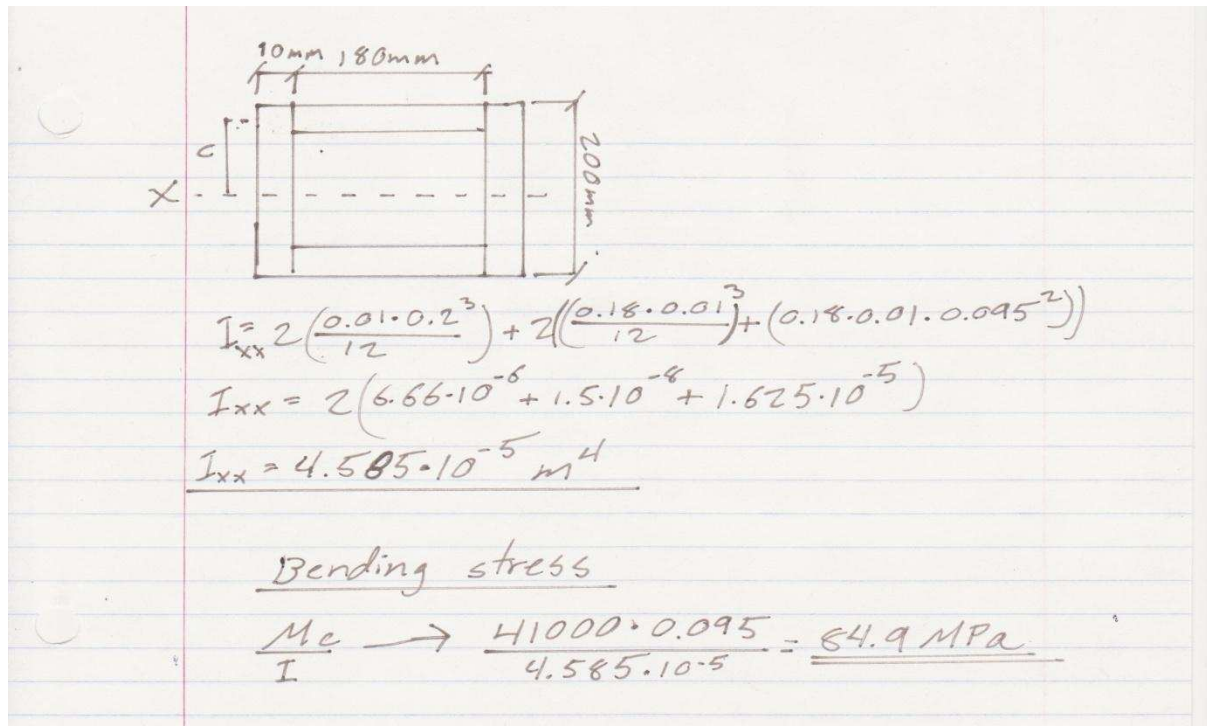 10mm 180mm
c
200mm
X
I_xx = 2(0.01·0.2³/12) + 2((0.18·0.01³/12) + (0.18·0.01·0.095²))
I_xx = 2(6.66·10⁻⁶ + 1.5·10⁻⁸ + 1.625·10⁻⁵)
I_xx = 4.585·10⁻⁵ m⁴
Bending stress
Mc/I → 41000·0.095/4.585·10-5 = 84.9 MPa